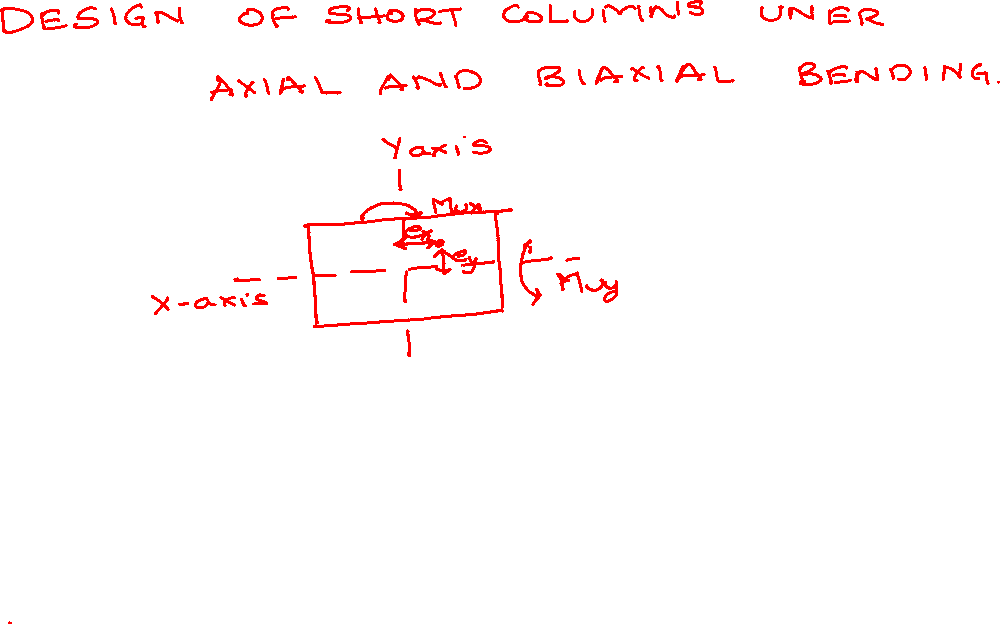 DESIGN OF SHORT COLUMNS UNER
AXIAL AND BIAXIAL BENDING.
Yaxis
Mux
ex
ey
X-axis
Muy